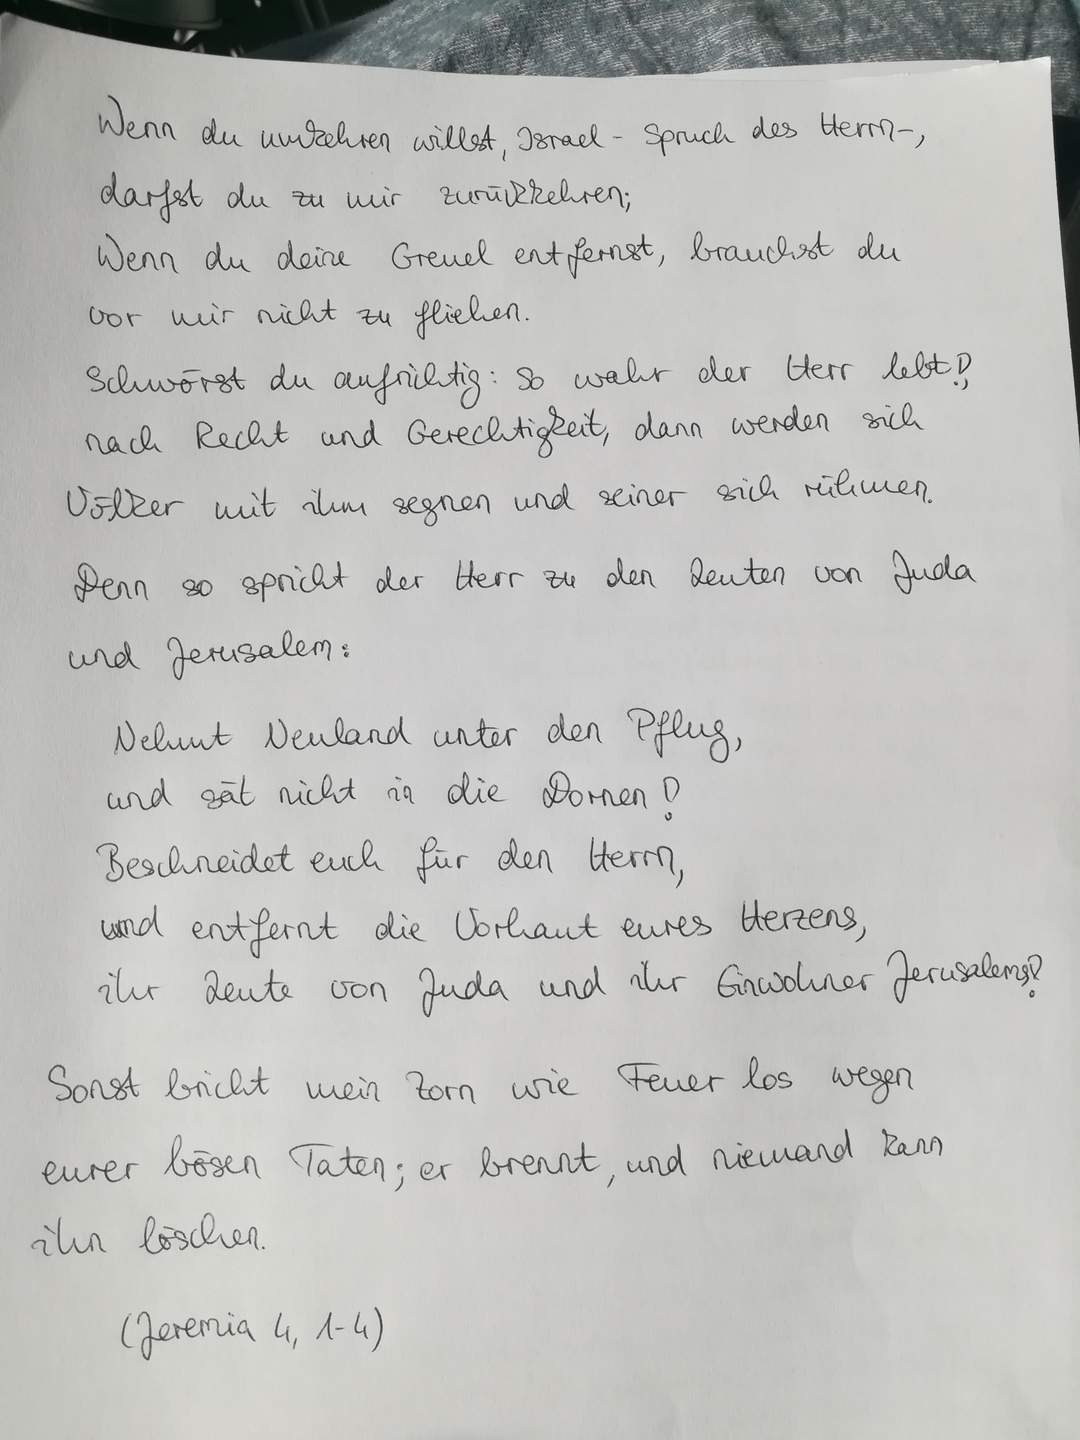 Wenn du umkehren willst, Israel - Spruch des Herrn-,
darfst du zu mir zurückkehren;
Wenn du deine Greuel entfernst, brauchst du
vor mir nicht zu fliehen.
Schwörst du aufrichtig: So wahr der Herr lebt!,
nach Recht und Gerechtigkeit, dann werden sich
Völker mit ihm segnen und seiner sich rühmen.
Denn so spricht der Herr zu den Leuten von Juda
und Jerusalem:
Nehmt Neuland unter den Pflug,
und sät nicht in die Dornen!
Beschneidet euch für den Herrn,
und entfernt die Vorhaut eures Herzens,
ihr Leute von Juda und ihr Einwohner Jerusalems!
Sonst bricht mein Zorn wie Feuer los wegen
eurer bösen Taten; er brennt, und niemand kann
ihn löschen.
(Jeremia 4, 1-4)